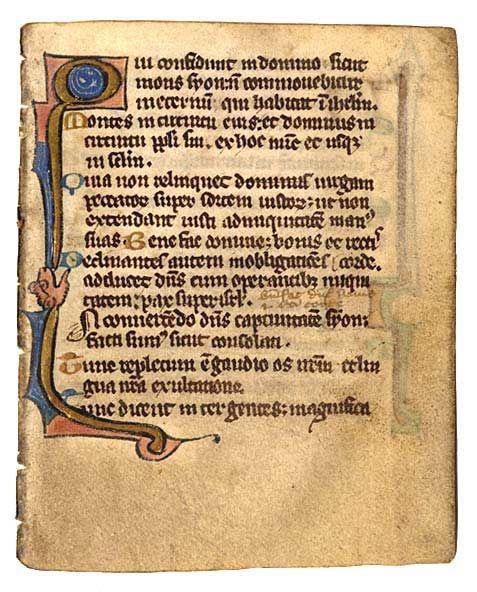 Qui confidunt in domino sicut
mons syon: nō commouebitur
in eternum qui habitat ī ihrlm.
Montes in circuitu eius: et dominus in
circuitu ppli sui. ex hoc nūc et usq;
in sclm.
Quia non relinquet dominus uirgam
peccator super sortem iustor: ut non
extendant iusti ad iniquitatē man⁹
suas. Benefac domine: bonis et recti⁹
Declinantes autem in obligatiōes corde.
adducet dn̄s cum operantib; iniqui
tatem: pax super isrl̄.
In conuertēdo dn̄s captiuitatē syon:
facti sum⁹ sicut consolati.
Tunc repletum ē gaudio os nr̄m: et lin
gua nr̄a exultatione.
Tunc dicent inter gentes: magnifica